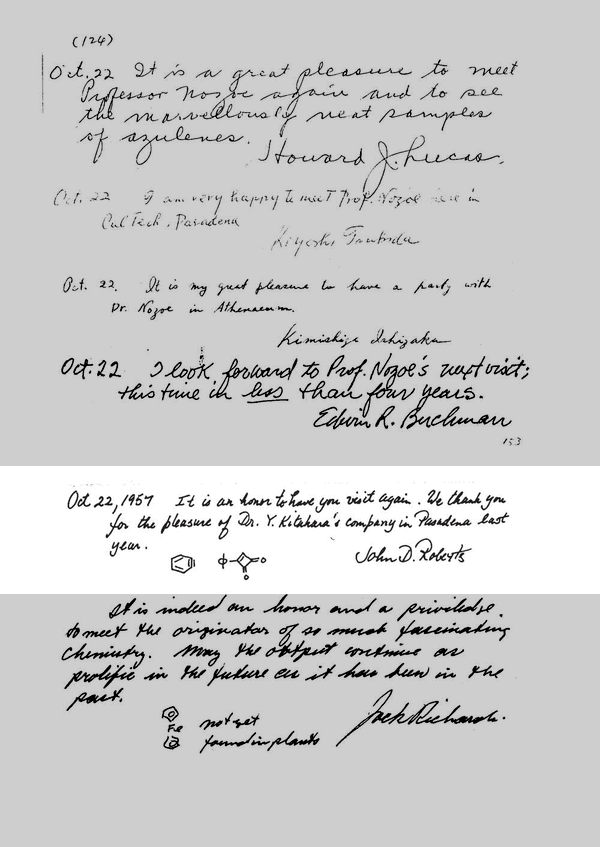 (124)
Oct. 22 It is a great pleasure to meet
Professor Nozoe again and to see
the marvellously neat samples
of azulenes.
Howard J. Lucas.
Oct. 22 I am very happy to meet Prof. Nozoe here in
Cal Tech, Pasadena
Kiyoshi
Oct. 22. It is my great pleasure to have a party with
Dr. Nozoe in Athenaeum.
Kimishige Ishizaka
Oct. 22 I look forward to Prof. Nozoe's next visit;
this time in less than four years.
Edwin R. Buchman
153
Oct 22, 1957 It is an honor to have you visit again. We thank you
for the pleasure of Dr. Y. Kitahara's company in Pasadena last
year.
φ
o
o
John D. Roberts
It is indeed an honor and a priviledge
to meet the originator of so much fascinating
chemistry. May the output continue as
prolific in the future as it has been in the
past.
Fe
not yet
found in plants
Jack Richards.